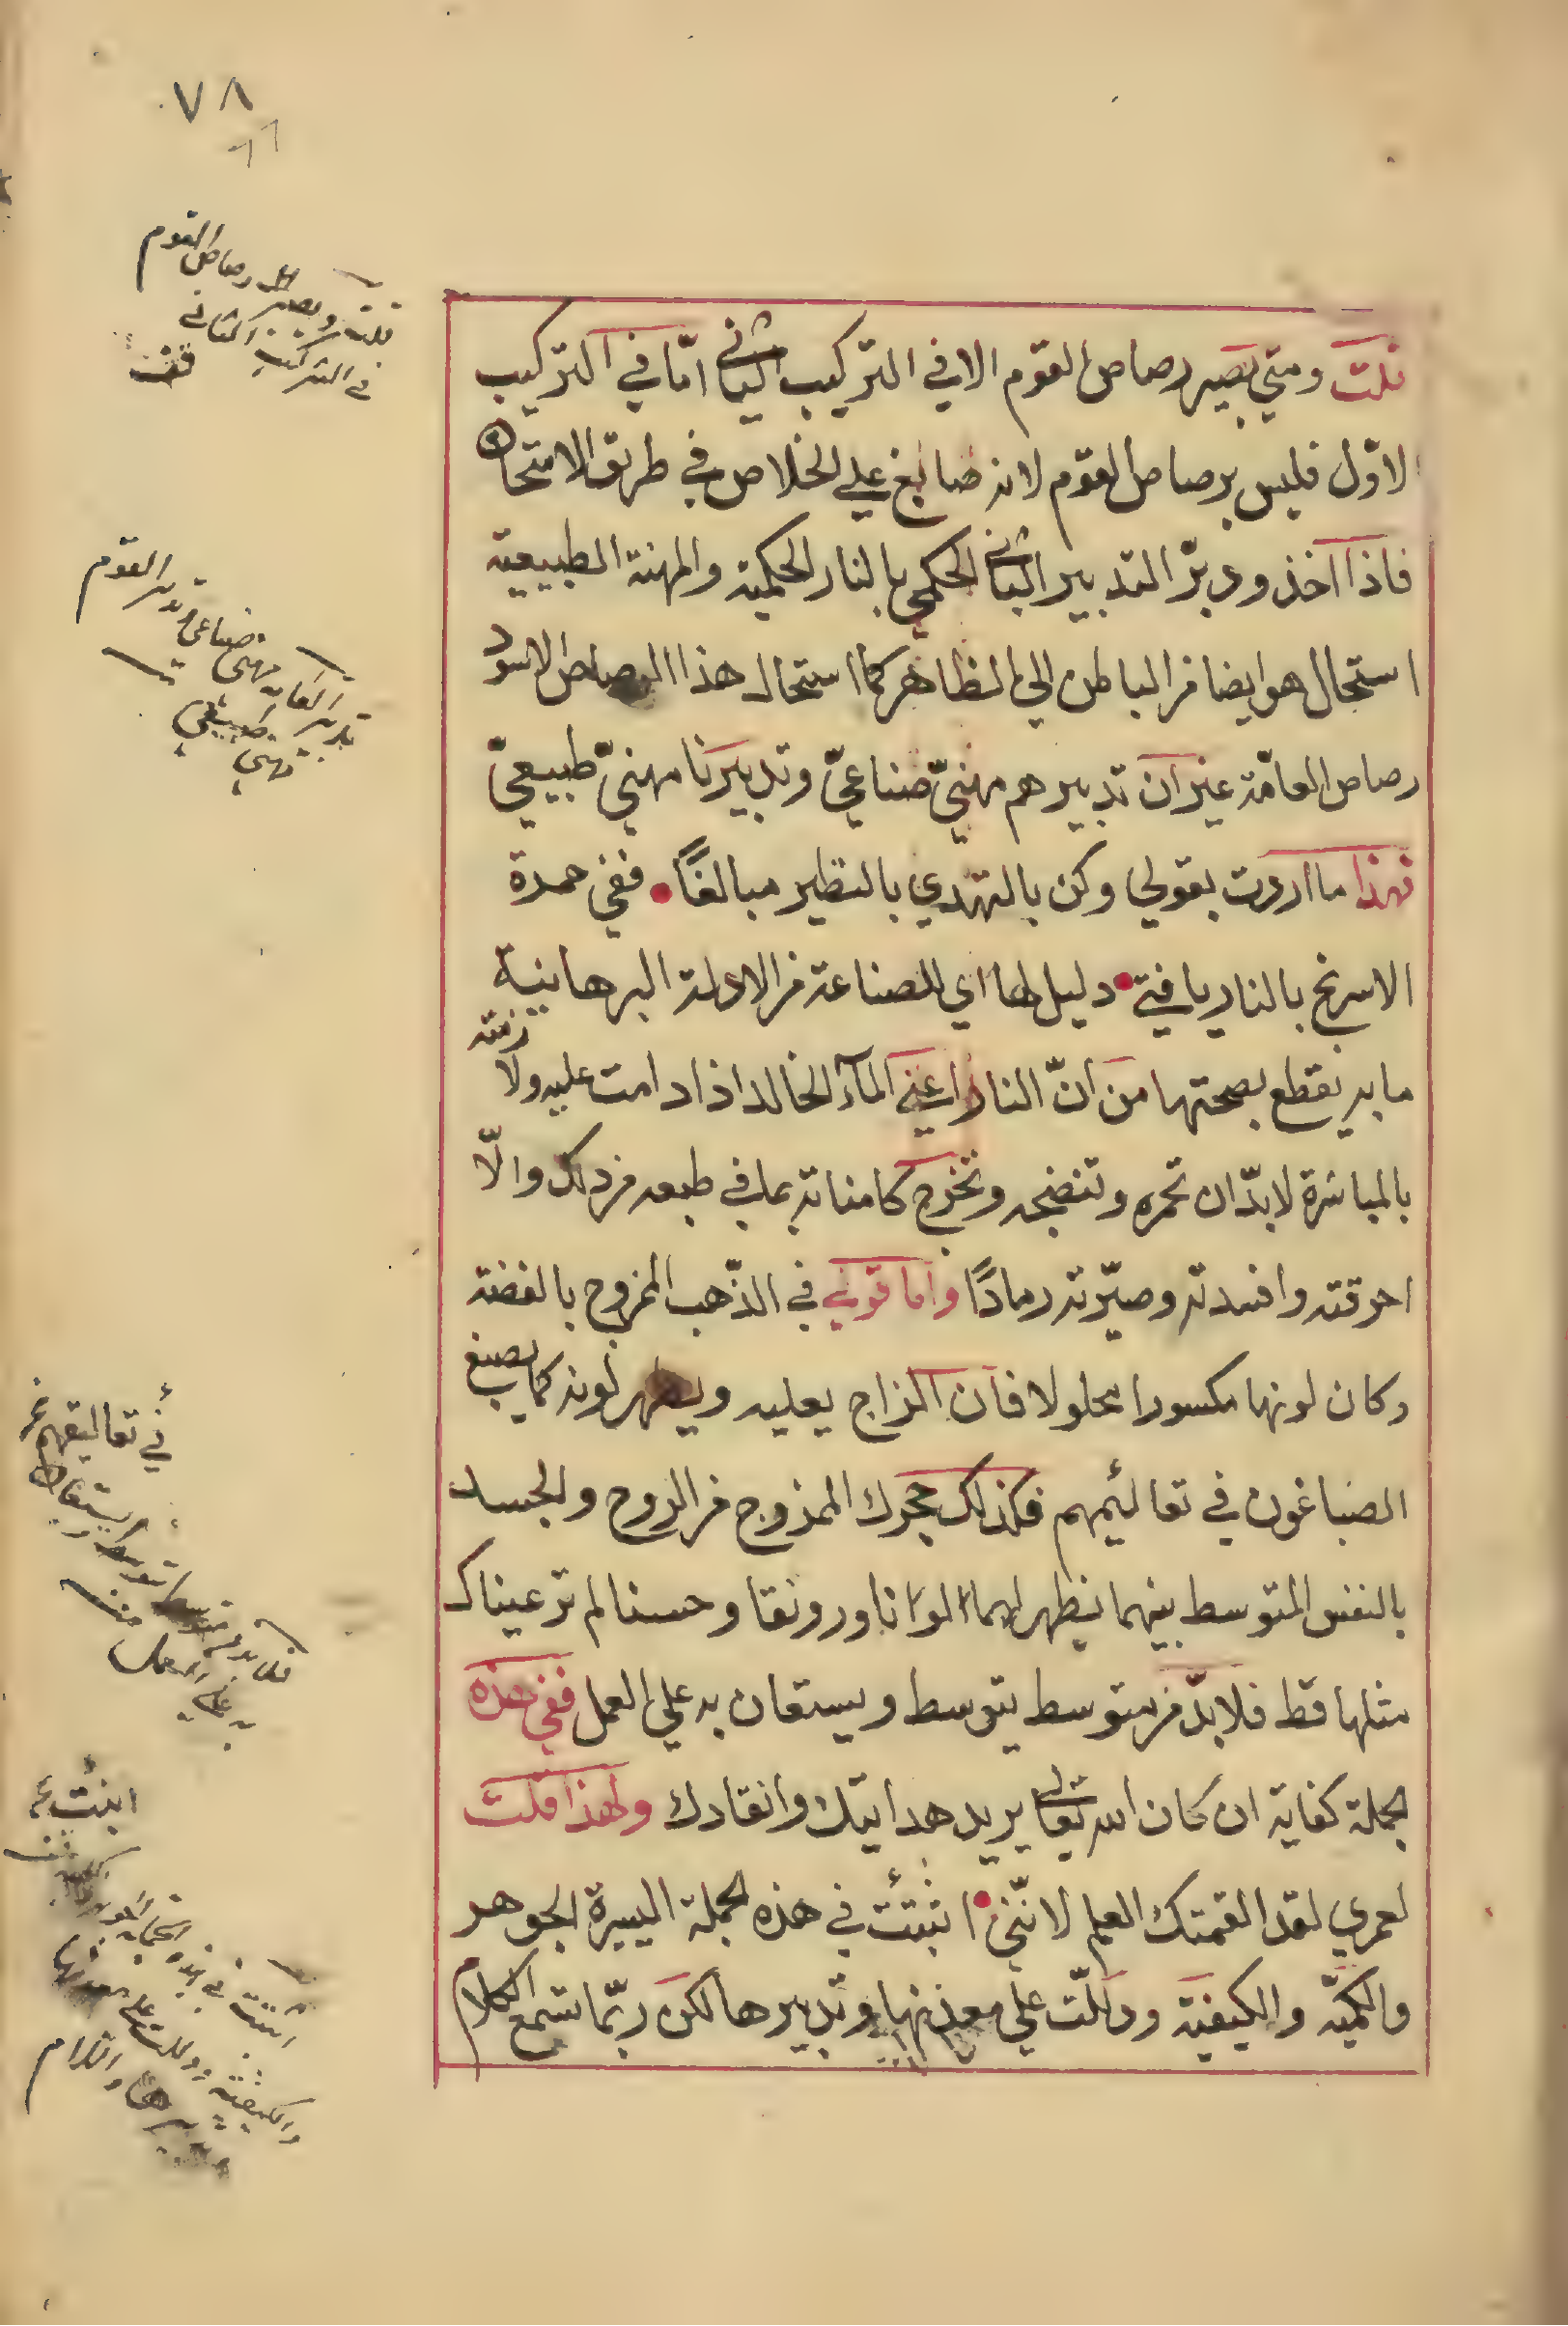 ٧٨
قلت ومتي يصير رصاص القوم الا في التركيب الثاني امّا في التركيب
الاوّل فليس برصاص القوم لانه صابغ علي الخلاص في طريق الامتحان
فاذا اخذ ودبّر التدبير الثاني الحكمي بالنار الحكمية والمهنة الطبيعية
استحال هو ايضا من الباطن الي الظاهر كما استحال هذا الرصاص الاسود
رصاص العامّة غير ان تدبيرهم مهنيّ صناعيّ وتدبيرنا مهنيّ طبيعيّ
فهذا ما اردت بقولي وكن بالتهدي بالنظير مبالغًا ففي حمرة
الاسرنج بالنار يا فتي دليل لها اي للصناعة من الادلة البرهانية
ما به نقطع بصحتها من انّ النار اعني المآء الخالد اذا دامت عليه ولازمته
بالمباشرة لابدّ ان تحمره وتنضجه وتخرج كامناته عما في طبعه من ذلك والّا
احرقته وافسدته وصيّرته رمادًا واما قولي في الذّهب الممزوج بالفضة
وكان لونها مكسورا محلولا فان الزاج يعليه ويظهر لونه كما يصنع
الصباغون في تعاليمهم فكذلك حجرك الممزوج من الروح والجسد
بالنفس المتوسط بينهما يظهر لهما الوانا ورونقا وحسنا لم تر عيناك
مثلها قط فلابدّ من متوسط يتوسط ويستعان به علي العمل ففي هذه
الجملة كفاية ان كان الله تعالي يريد هدايتك وانقادك ولهذا قلت
لعمري لقد القمتك العلم لانّني اثبتت في هذه الجملة اليسيرة الجوهر
والكميّة والكيفية ودللّت علي معدنها وتدبيرها لكن ربّما تسمع الكلام
قلت ويصير رصاص القوم
في التركيب الثاني
قف
تدبير العامة مهني صناعي وتدبير القوم
مهني طبيعي
في تعاليقهم
فلابد من متوسط يتوسط ويستعان
به علي العمل
ابنت